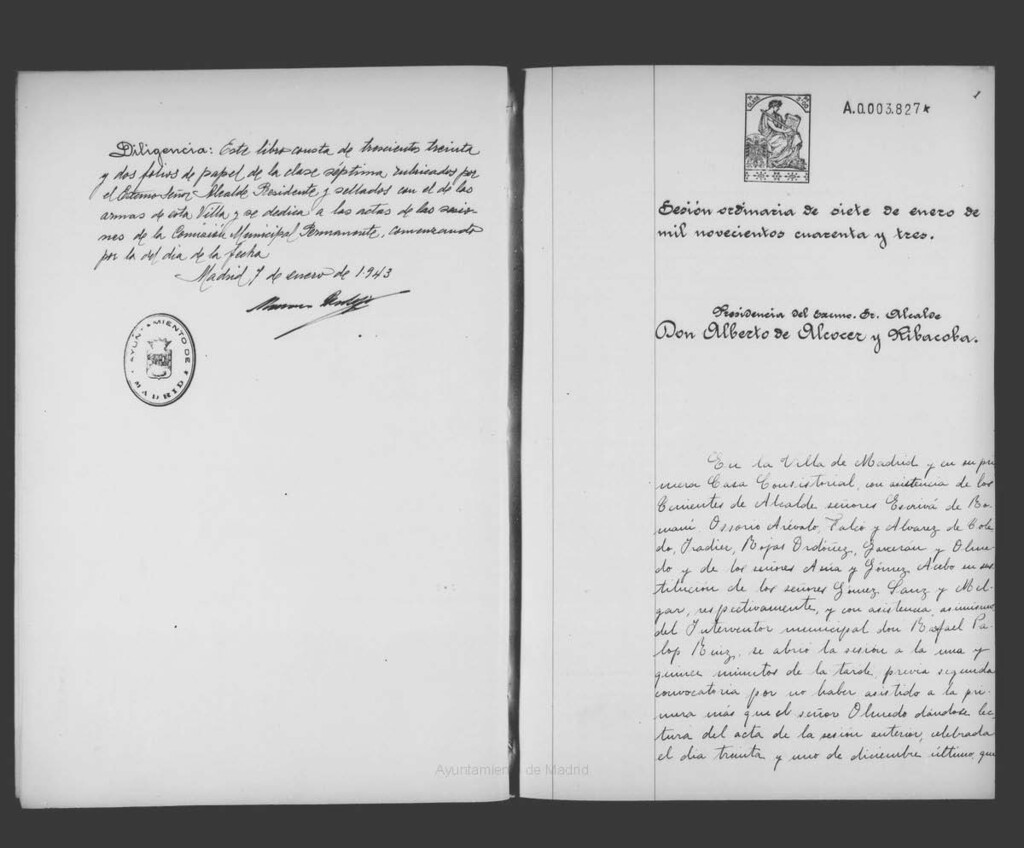 Diligencia: Este libro consta de trescientos treinta
y dos folios de papel de la clase séptima rubricados por
el Excmo Señor Alcalde Presidente y sellados con el de las
armas de esta Villa y se dedica a las actas de las sesio-
nes de la Comisión Municipal Permanente, comenzando
por la del dia de la fecha
Madrid 7 de enero de 1943
AYUNTAMIENTO DE
MADRID
1
A.0.003.827*
Sesión ordinaria de siete de enero de
mil novecientos cuarenta y tres.
Presidencia del Excmo. Sr. Alcalde
Don Alberto de Alcocer y Ribacoba.
En la Villa de Madrid y en su pri
mera Casa Consistorial, con asistencia de los
Tenientes de Alcalde señores Escrivá de Ro-
maní Ossorio Arévalo, Falcó y Alvarez de Tole
do, Iradier, Rojas Ordóñez, y Olme-
do y de los señores y Gómez Acebo en sus
titución de los señores Gómez Sanz y Mel-
gar, respectivamente, y con asistencia, asimismo
del Interventor municipal don Rafael Pa-
lop Ruiz, se abrió la sesión a la una y
quince minutos de la tarde, previa segunda
convocatoria por no haber asistido a la pri-
mera más que el señor Olmedo dándose lec-
tura del acta de la sesión anterior, celebrada
el dia treinta y uno de diciembre último, que
Ayuntamiento de Madrid